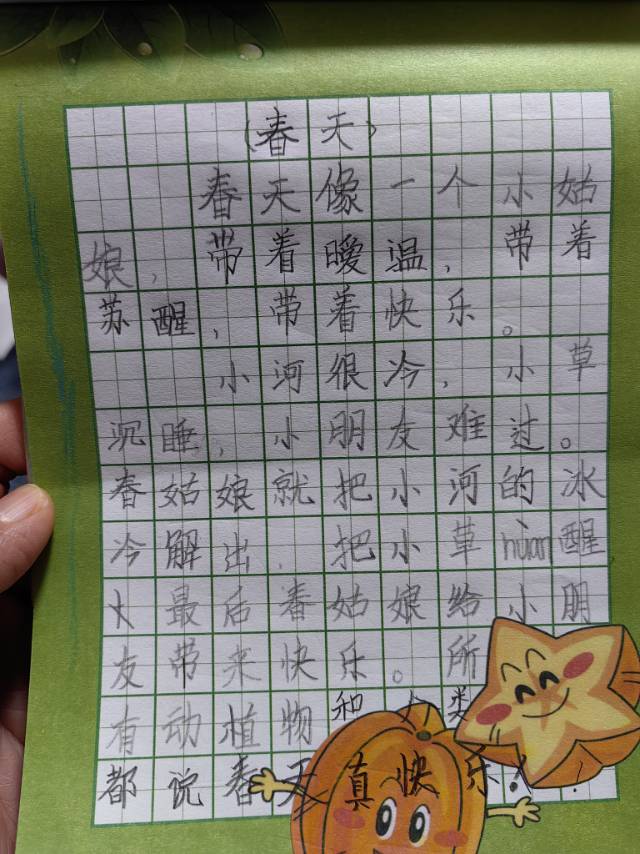 (春天)
春天像一个小姑
娘，带着暧温，带着
苏醒，带着快乐。
小河很冷，小草
沉睡，小朋友难过。
春姑娘就把小河的冰
冷解出，把小草huàn醒
最后春姑娘给小朋
友带来快乐。所
有动植物和人类
都说春天真快乐！